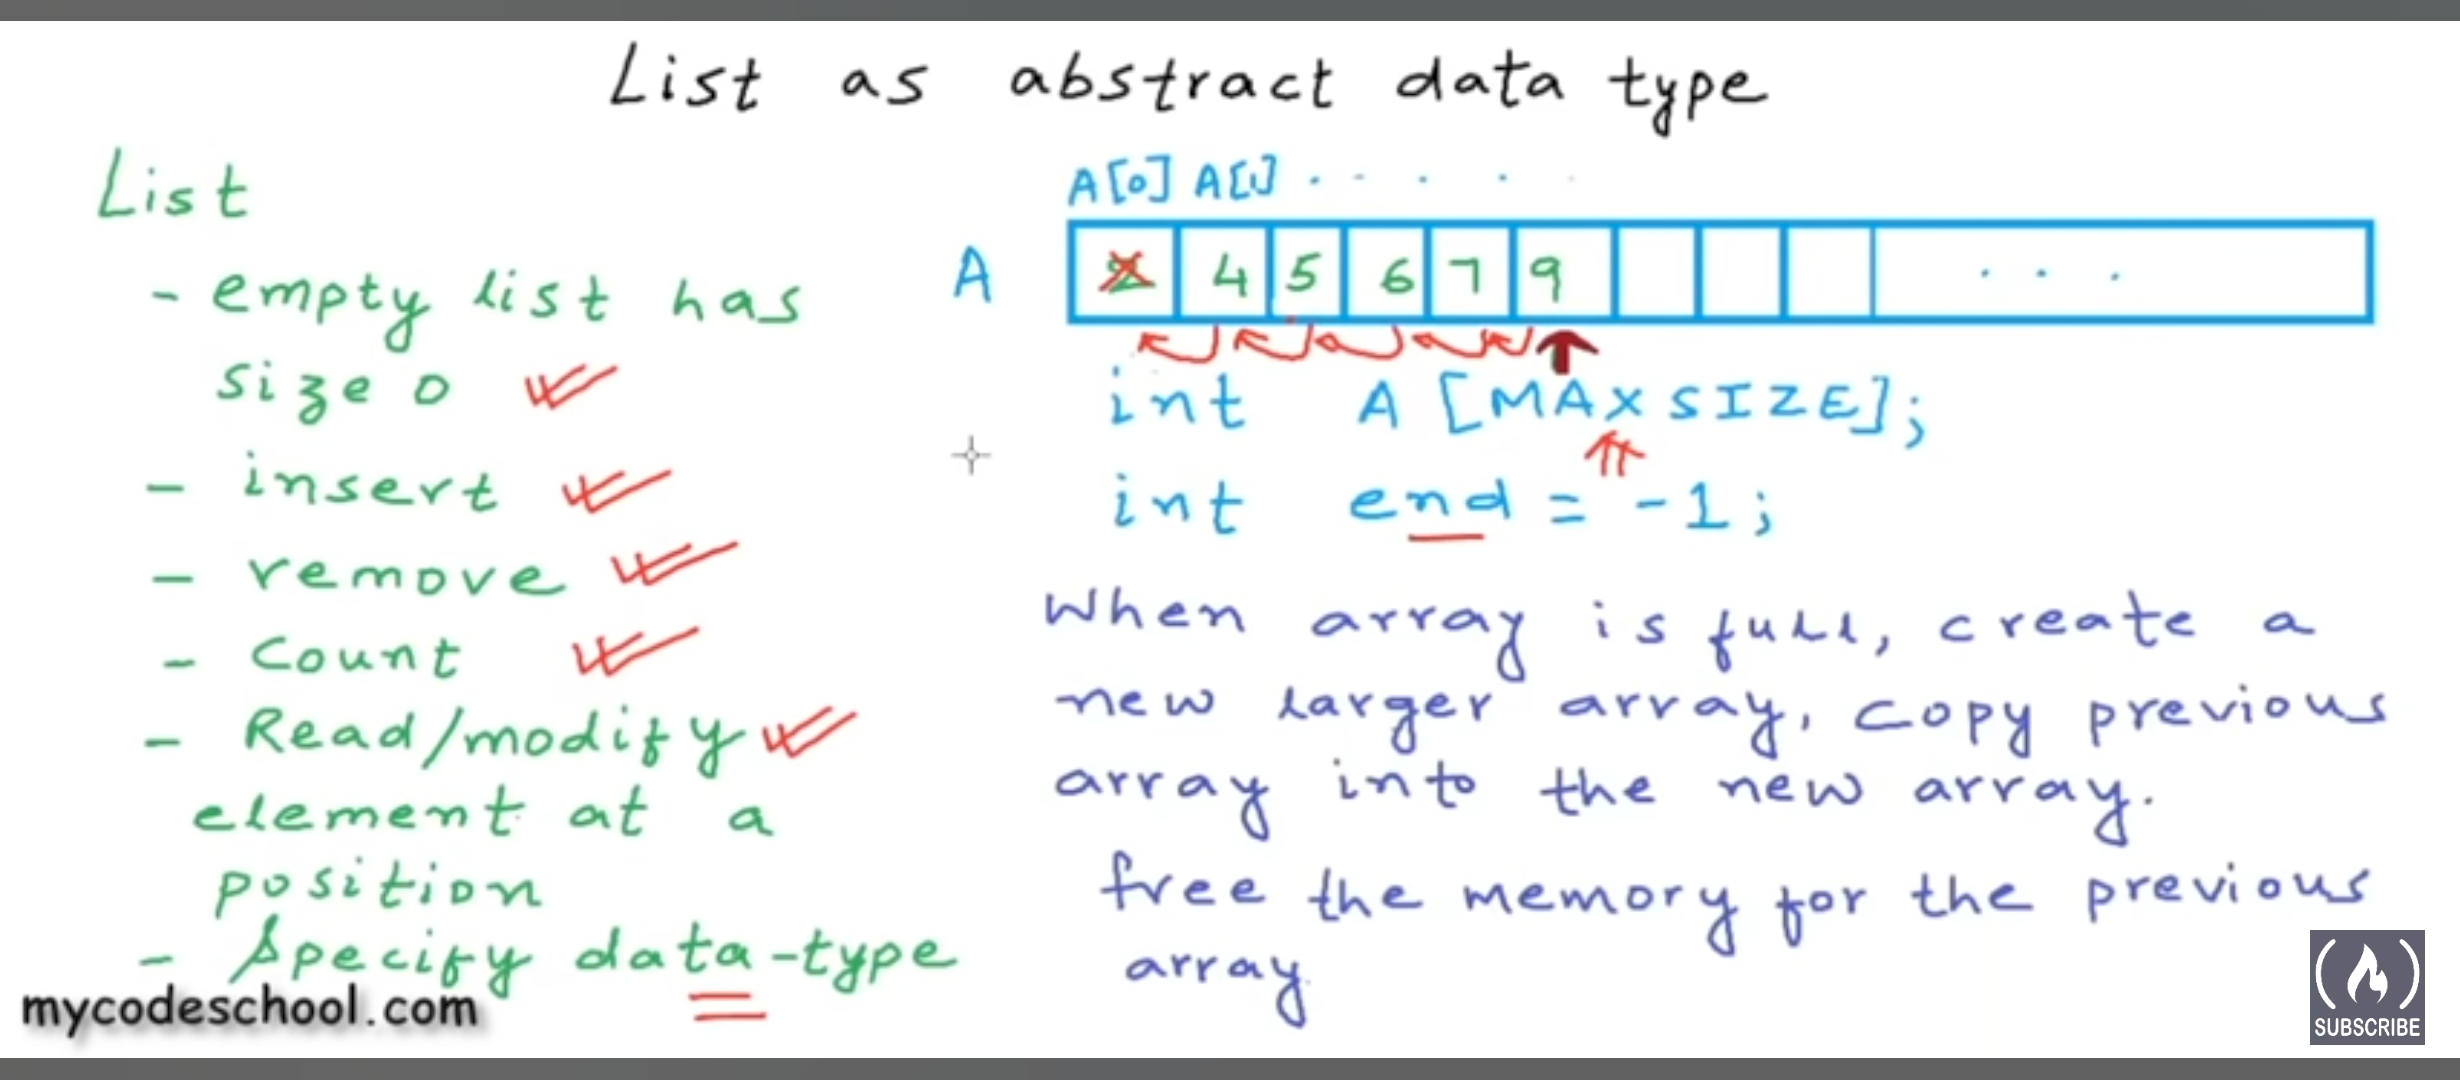 List as abstract data type
List
- empty list has
size 0
- insert
- remove
- Count
- Read/modify
element at a
position
- Specify data-type
mycodeschool.com
A[0] A[1] . . . . .
A 4 5 6 7 9 . . .
int A [MAXSIZE];
int end = -1;
When array is full, create a
new larger array, copy previous
array into the new array.
free the memory for the previous
array.
SUBSCRIBE